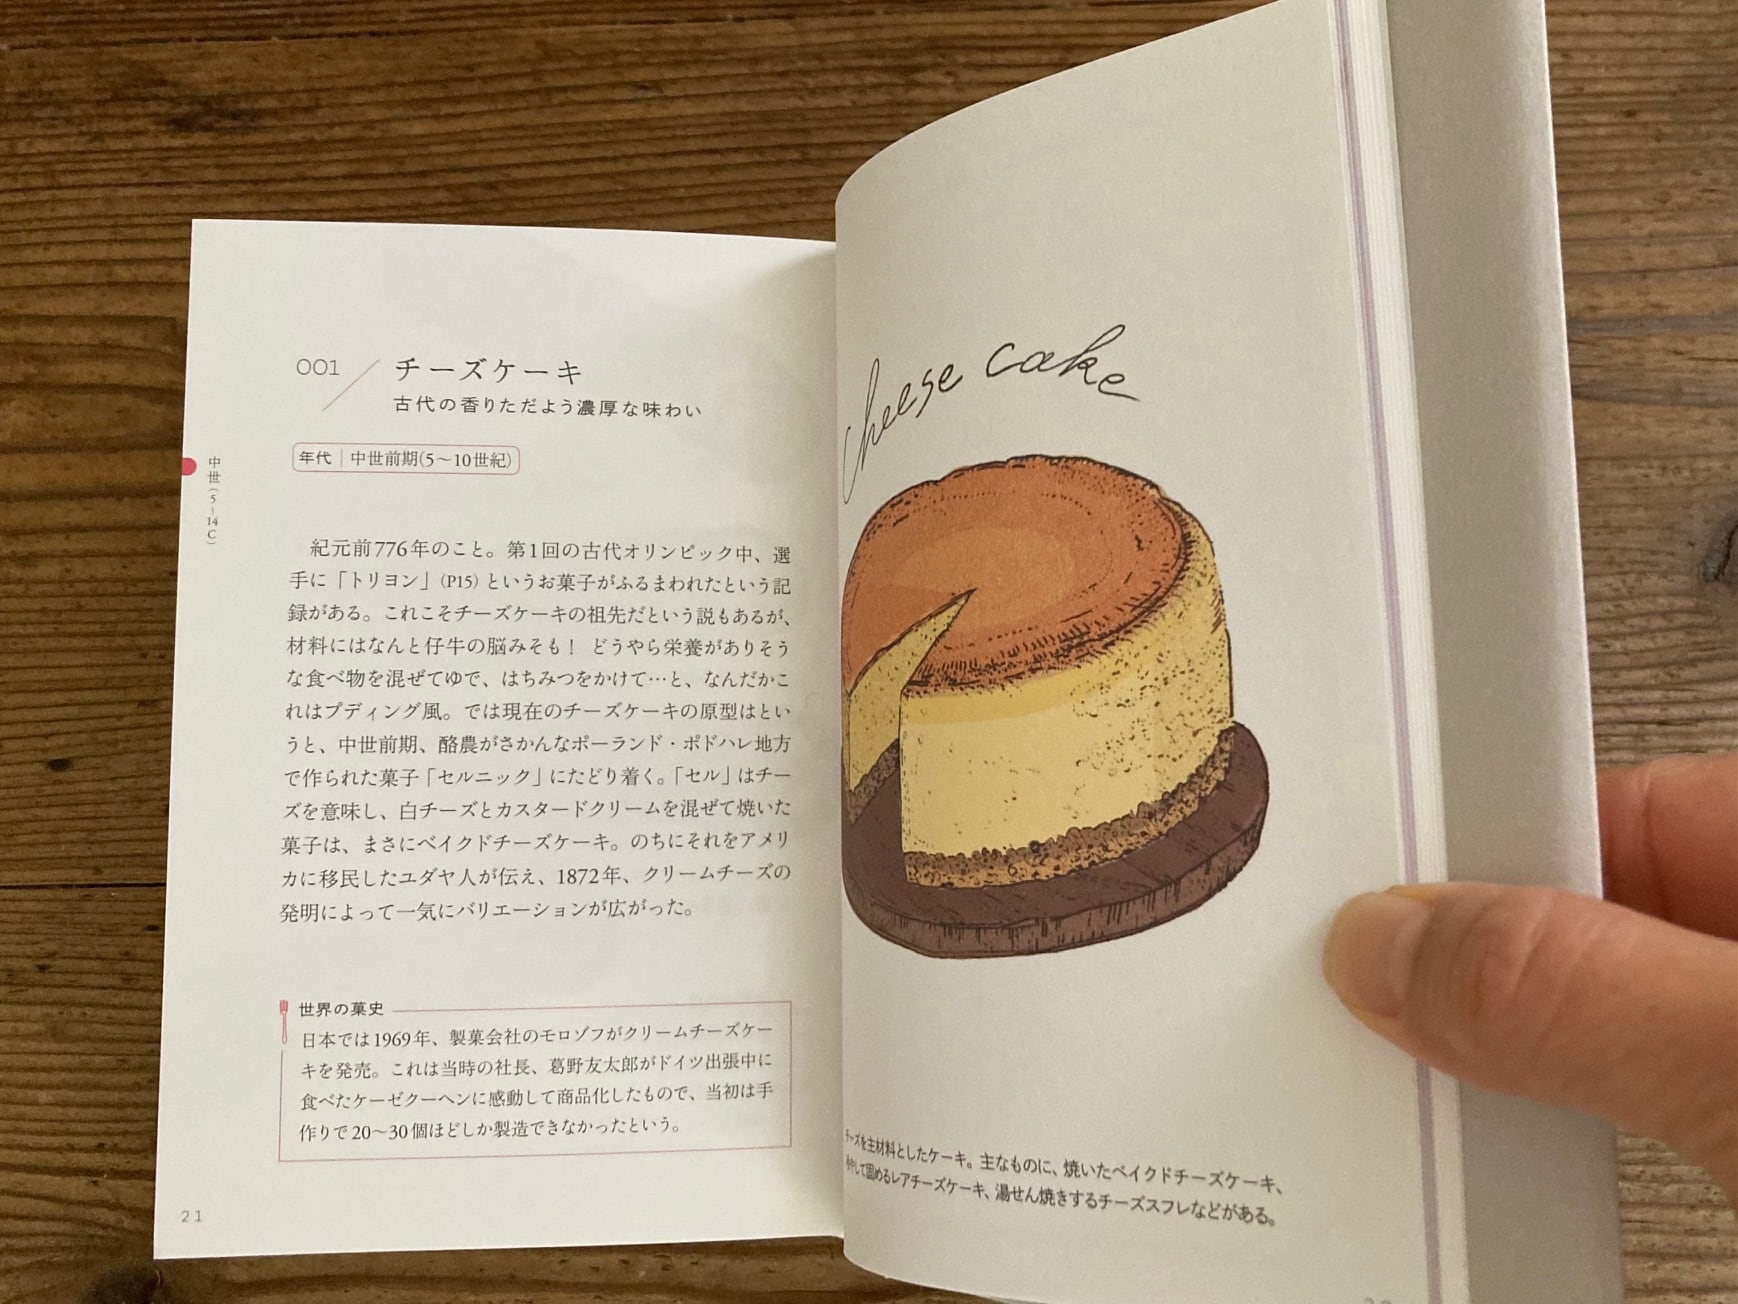 001
チーズケーキ
古代の香りただよう濃厚な味わい
年代 | 中世前期(5〜10世紀)
中世(5〜14C)
紀元前776年のこと。第1回の古代オリンピック中、選
手に「トリヨン」(P15)というお菓子がふるまわれたという記
録がある。これこそチーズケーキの祖先だという説もあるが、
材料にはなんと仔牛の脳みそも！ どうやら栄養がありそう
な食べ物を混ぜてゆで、はちみつをかけて…と、なんだかこ
れはプディング風。では現在のチーズケーキの原型はとい
うと、中世前期、酪農がさかんなポーランド・ポドハレ地方
で作られた菓子「セルニック」にたどり着く。「セル」はチー
ズを意味し、白チーズとカスタードクリームを混ぜて焼いた
菓子は、まさにベイクドチーズケーキ。のちにそれをアメリ
カに移民したユダヤ人が伝え、1872年、クリームチーズの
発明によって一気にバリエーションが広がった。
世界の菓史
日本では1969年、製菓会社のモロゾフがクリームチーズケー
キを発売。これは当時の社長、葛野友太郎がドイツ出張中に
食べたケーゼクーヘンに感動して商品化したもので、当初は手
作りで20〜30個ほどしか製造できなかったという。
21
cheese cake
チーズを主材料としたケーキ。主なものに、焼いたベイクドチーズケーキ、
冷やして固めるレアチーズケーキ、湯せん焼きするチーズスフレなどがある。